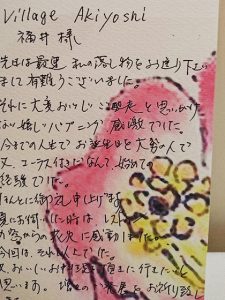 Village Akiyoshi
福井様
先日は最望 私の落し物をお送り下さい
まして有難うございました。
それに大変おいしいご馳走と思いがけ
ない嬉しいハプニング 感激でした。
今までの人生でお誕生日を大勢の人で
又、コーラス付きになんて、始めての
経験でした。
ほんとに御礼申し上げます
夏にお伺いした時は レスト
の窓からの
に感動しました。
今回は、それ以上でした。
又、おいしいお料理を頂きに行きたいと
思います。